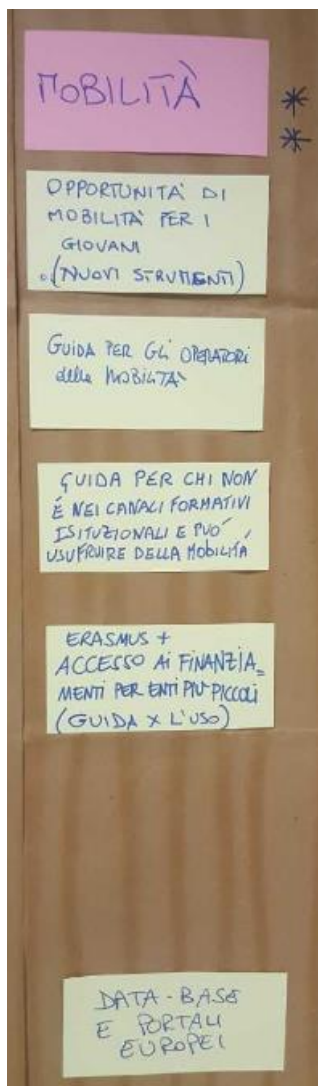 MOBILITÀ
*
*
OPPORTUNITÀ DI
MOBILITÀ PER I
GIOVANI
(NUOVI STRUMENTI)
GUIDA PER GLI OPERATORI
della MOBILITÀ
GUIDA PER CHI NON
È NEI CANALI FORMATIVI
ISITUZIONALI E PUÒ
USUFRUIRE DELLA MOBILITÁ
ERASMUS +
ACCESSO AI FINANZIA=
MENTI PER ENTI PIÙ PICCOLI
(GUIDA X L'USO)
DATA-BASE
E PORTALI
EUROPEI